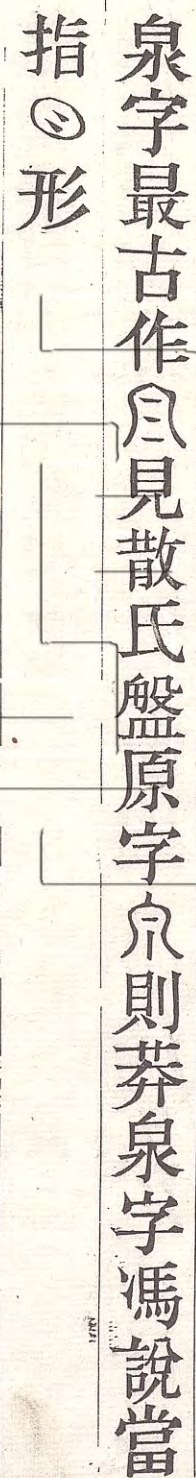 泉字最古作見散氏盤原字則莽泉字馮說當
指形